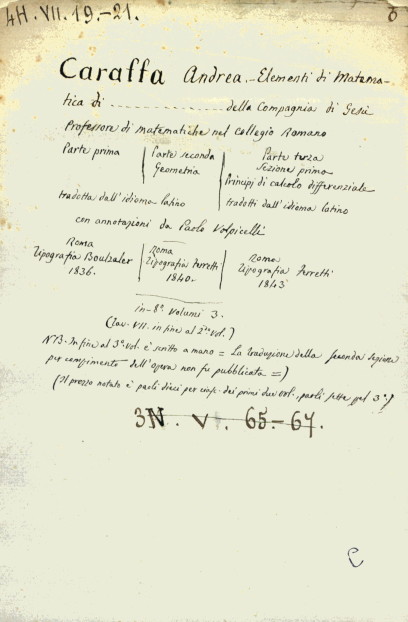 4H.VII.19-21.
Caraffa Andrea.- Elementi di Matema-
tica di ........................ della Compagnia di Gesù
Professore di matematiche nel Collegio Romano
Parte prima | Parte seconda Geometria | Parte terza Sezione prima Principj di calcolo differenziale
tradotta dall'idioma latino | tradotti dall'idioma latino
con annotazioni da Paolo Volpicelli
Roma | Roma | Roma
Tipografia Boulzaler | Tipografia Ferretti | Tipografia Ferretti
1836. | 1840. | 1843
in-8º. Volumi 3.
(Tav. VII. in fine al 2º Vol.)
NB. In fine al 3º vol. è scritto a mano = La traduzione della seconda Sezione
per compimento dell'opera non fu pubblicata =)
(Il prezzo notato è paoli dieci per ciasc. dei primi due vol., paoli sette pel 3º.)
3N. V. 65-67.